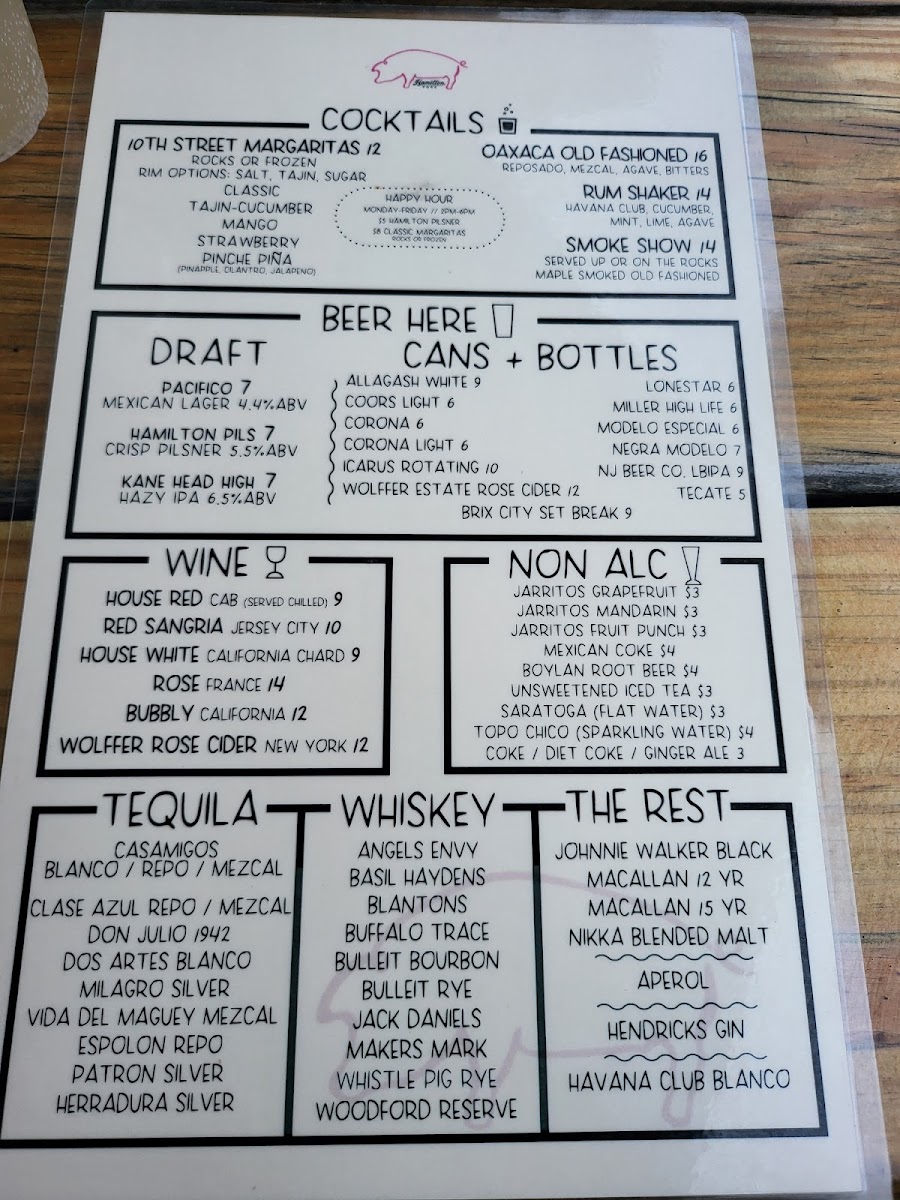 Hamilton
PORK
COCKTAILS
10TH STREET MARGARITAS 12
ROCKS OR FROZEN
RIM OPTIONS: SALT, TAJIN, SUGAR
CLASSIC
TAJIN-CUCUMBER
MANGO
STRAWBERRY
PINCHE PIÑA
(PINAPPLE, CILANTRO, JALAPENO)
HAPPY HOUR
MONDAY-FRIDAY // 2PM-6PM
$5 HAMILTON PILSNER
$8 CLASSIC MARGARITAS
ROCKS OR FROZEN
OAXACA OLD FASHIONED 16
REPOSADO, MEZCAL, AGAVE, BITTERS
RUM SHAKER 14
HAVANA CLUB, CUCUMBER,
MINT, LIME, AGAVE
SMOKE SHOW 14
SERVED UP OR ON THE ROCKS
MAPLE SMOKED OLD FASHIONED
BEER HERE
DRAFT
PACIFICO 7
MEXICAN LAGER 4.4%ABV
HAMILTON PILS 7
CRISP PILSNER 5.5%ABV
KANE HEAD HIGH 7
HAZY IPA 6.5%ABV
CANS + BOTTLES
ALLAGASH WHITE 9
COORS LIGHT 6
CORONA 6
CORONA LIGHT 6
ICARUS ROTATING 10
WOLFFER ESTATE ROSE CIDER 12
LONESTAR 6
MILLER HIGH LIFE 6
MODELO ESPECIAL 6
NEGRA MODELO 7
NJ BEER CO. LBIPA 9
TECATE 5
BRIX CITY SET BREAK 9
WINE
HOUSE RED CAB (SERVED CHILLED) 9
RED SANGRIA JERSEY CITY 10
HOUSE WHITE CALIFORNIA CHARD 9
ROSE FRANCE 14
BUBBLY CALIFORNIA 12
WOLFFER ROSE CIDER NEW YORK 12
NON ALC
JARRITOS GRAPEFRUIT $3
JARRITOS MANDARIN $3
JARRITOS FRUIT PUNCH $3
MEXICAN COKE $4
BOYLAN ROOT BEER $4
UNSWEETENED ICED TEA $3
SARATOGA (FLAT WATER) $3
TOPO CHICO (SPARKLING WATER) $4
COKE / DIET COKE / GINGER ALE 3
TEQUILA
CASAMIGOS
BLANCO / REPO / MEZCAL
CLASE AZUL REPO / MEZCAL
DON JULIO 1942
DOS ARTES BLANCO
MILAGRO SILVER
VIDA DEL MAGUEY MEZCAL
ESPOLON REPO
PATRON SILVER
HERRADURA SILVER
WHISKEY
ANGELS ENVY
BASIL HAYDENS
BLANTONS
BUFFALO TRACE
BULLEIT BOURBON
BULLEIT RYE
JACK DANIELS
MAKERS MARK
WHISTLE PIG RYE
WOODFORD RESERVE
THE REST
JOHNNIE WALKER BLACK
MACALLAN 12 YR
MACALLAN 15 YR
NIKKA BLENDED MALT
APEROL
HENDRICKS GIN
HAVANA CLUB BLANCO